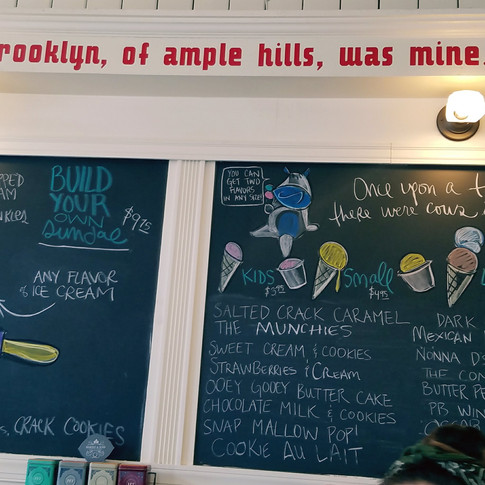 rooklyn, of ample hills, was mine.
BUILD
YOUR
OWN
Sundae
$9.75
ANY FLAVOR
of ICE CREAM
CRACK COOKIES
YOU CAN
GET TWO
FLAVORS
IN ANY SIZE!
Once upon a t
there were cows
KIDS
Small
SALTED CRACK CARAMEL
THE MUNCHIES
SWEET CREAM & COOKIES
STRAWBERRIES & CREAM
OOEY GOOEY BUTTER CAKE
CHOCOLATE MILK & COOKIES
SNAP MALLOW POP!
COOKIE AU LAIT
DARK
MEXICAN
NONNA D'S
THE CON
BUTTER PE
PB WIN